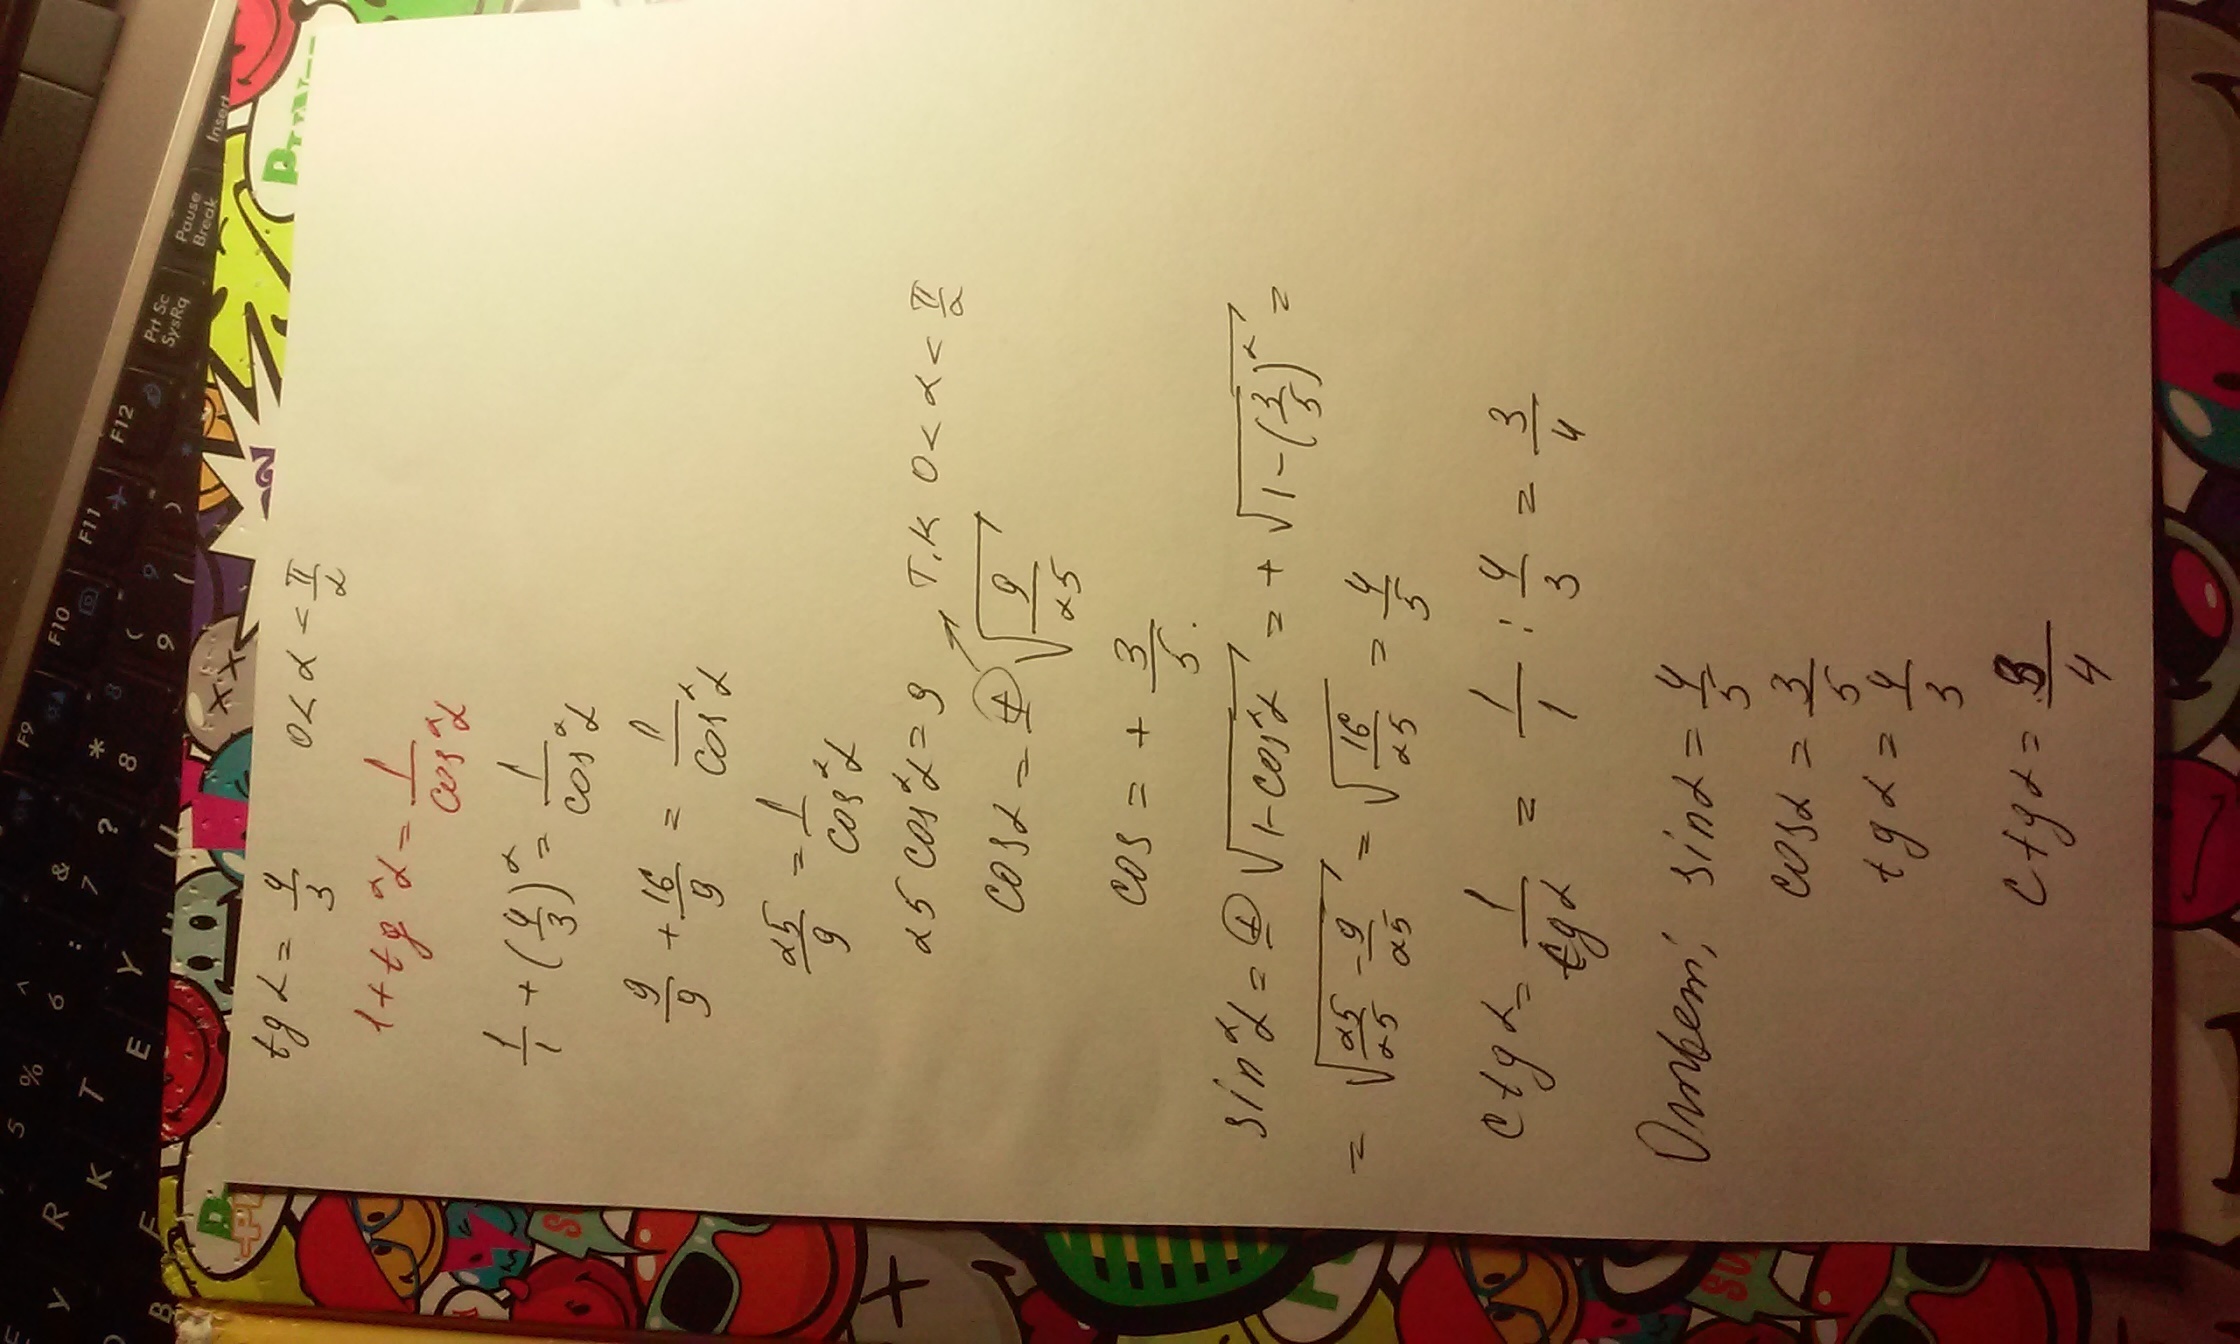 tg α = 4/3   0 < α < π/2
1 + tg²α = 1/cos²α
1/1 + (4/3)² = 1/cos²α
9/9 + 16/9 = 1/cos²α
25/9 = 1/cos²α
25 cos²α = 9   т.к 0 < α < π/2
cos α = ± √(9/25)
cos = + 3/5.
sin²α = ± √(1 - cos²α) = + √(1 - (3/5)²) =
= √(25/25 - 9/25) = √(16/25) = 4/5
ctg α = 1/tg α = 1/1 : 4/3 = 3/4
Ответ; sin α = 4/5
cos α = 3/5
tg α = 4/3
ctg α = 3/4
Insert
Pause
Break
Prt Sc
SysRq
F12
F11
F10
F9